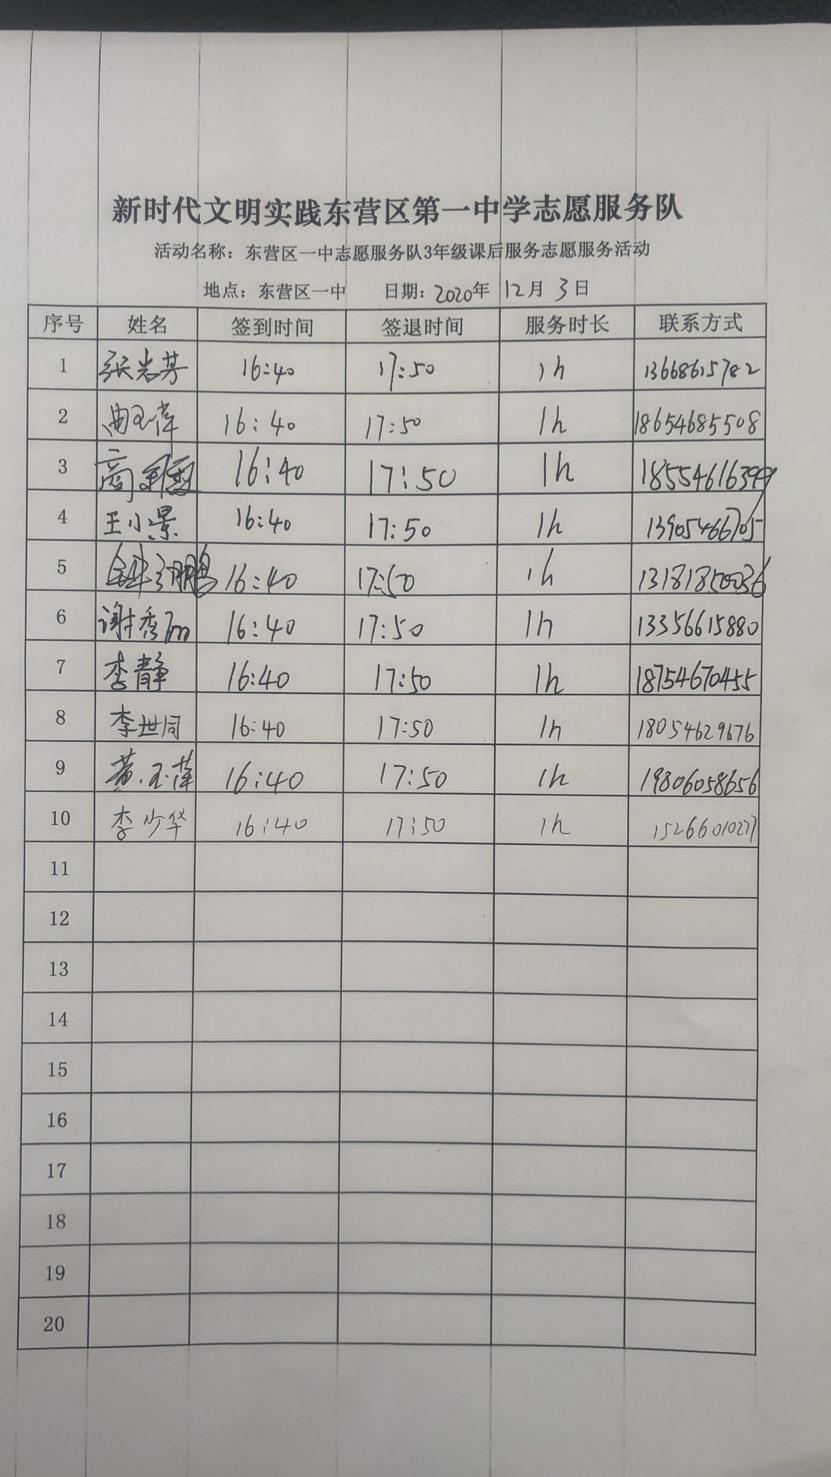 新时代文明实践东营区第一中学志愿服务队
活动名称：东营区一中志愿服务队3年级课后服务志愿服务活动
地点：东营区一中 日期：2020年 12月 3日
序号 姓名 签到时间 签退时间 服务时长 联系方式
1 张岩芳 16:40 17:50 1h 13668615782
2 曲玉萍 16:40 17:50 1h 18654685508
3 16:40 17:50 1h
4 王小景 16:40 17:50 1h 13905466705
5 16:40 17:50 1h
6 谢秀丽 16:40 17:50 1h 13356615880
7 李静 16:40 17:50 1h 18754670455
8 李世同 16:40 17:50 1h 18054629676
9 黄玉萍 16:40 17:50 1h 19806058656
10 李少华 16:40 17:50 1h 15266010277
11
12
13
14
15
16
17
18
19
20